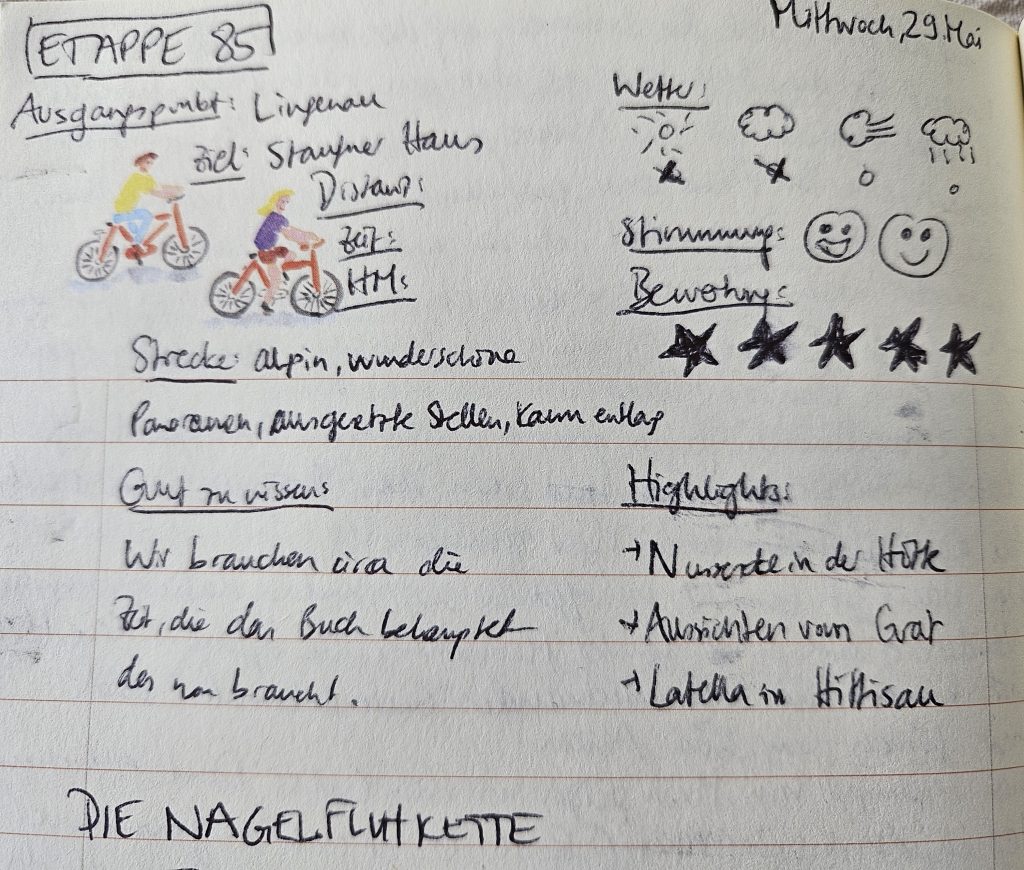 ETAPPE 85
Mittwoch, 29. Mai
Ausgangspunkt: Lingenau
Ziel: Staufner Haus
Distanz:
Zeit:
HM:
Wetter:
Stimmung:
Bewertung:
Strecke: alpin, wunderschöne
Panoramen, ausgesetzte Stellen, kaum entlag
Gut zu wissen:
Wir brauchen circa die
Zeit, die das Buch behauptet
das man braucht.
Highlights:
→ Nussecke in der Hütte
→ Aussichten vom Grat
→ Latella in Hittisau
DIE NAGELFLUHKETTE